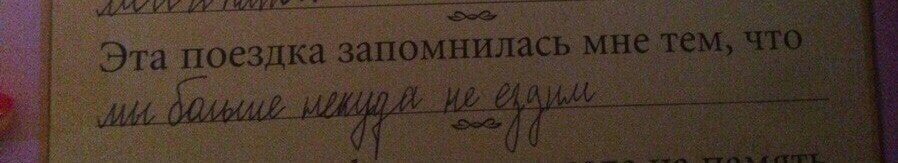 Эта поездка запомнилась мне тем, что
мы больше некуда не ездим
на память